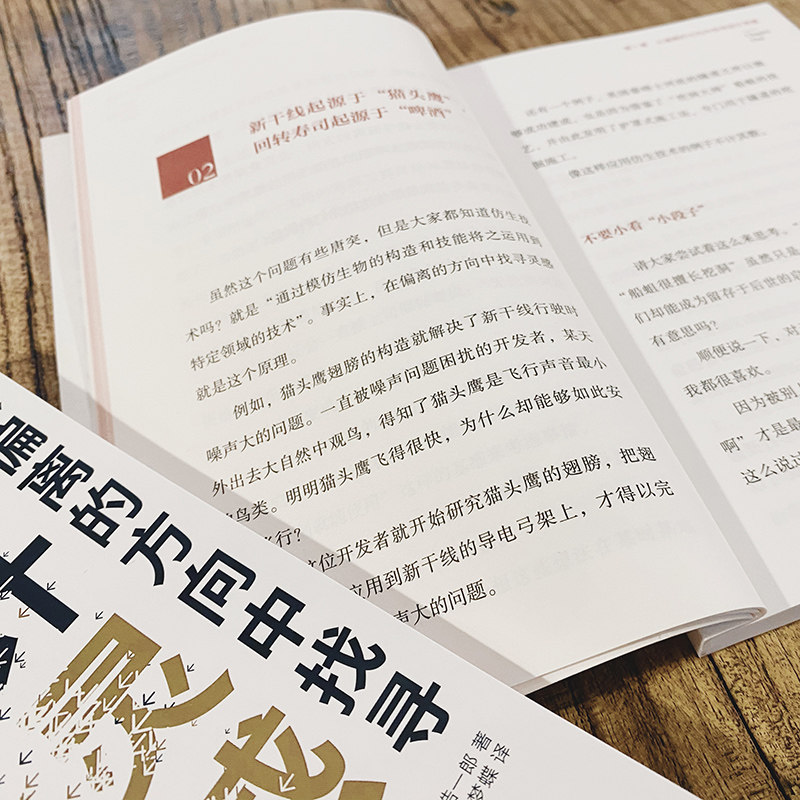 02
新干线起源于“猫头鹰”，
回转寿司起源于“啤酒”
虽然这个问题有些唐突，但是大家都知道仿生技
术吗？就是“通过模仿生物的构造和技能将之运用到
特定领域的技术”。事实上，在偏离的方向中找寻灵感
就是这个原理。
例如，猫头鹰翅膀的构造就解决了新干线行驶时
噪声大的问题。一直被噪声问题困扰的开发者，某天
外出去大自然中观鸟，得知了猫头鹰是飞行声音最小
的鸟类。明明猫头鹰飞得很快，为什么却能够如此安
行？
这位开发者就开始研究猫头鹰的翅膀，把翅
应用到新干线的导电弓架上，才得以完
声大的问题。
还有一个例子，
艺，并由此发明了护盾式施工法，
掘施工。
像这样应用仿生技术的例子不计其数。
不要小看“小段子”
请大家尝试着这么来思考。
“船蛆很擅长挖洞”虽然只是
们却能成为留存于后世的
有意思吗？
顺便说一下，对
我都很喜欢。
因为被别
啊”才是最
这么说过
偏离的方向中找寻
灵感
一郎 著
梦蝶 译